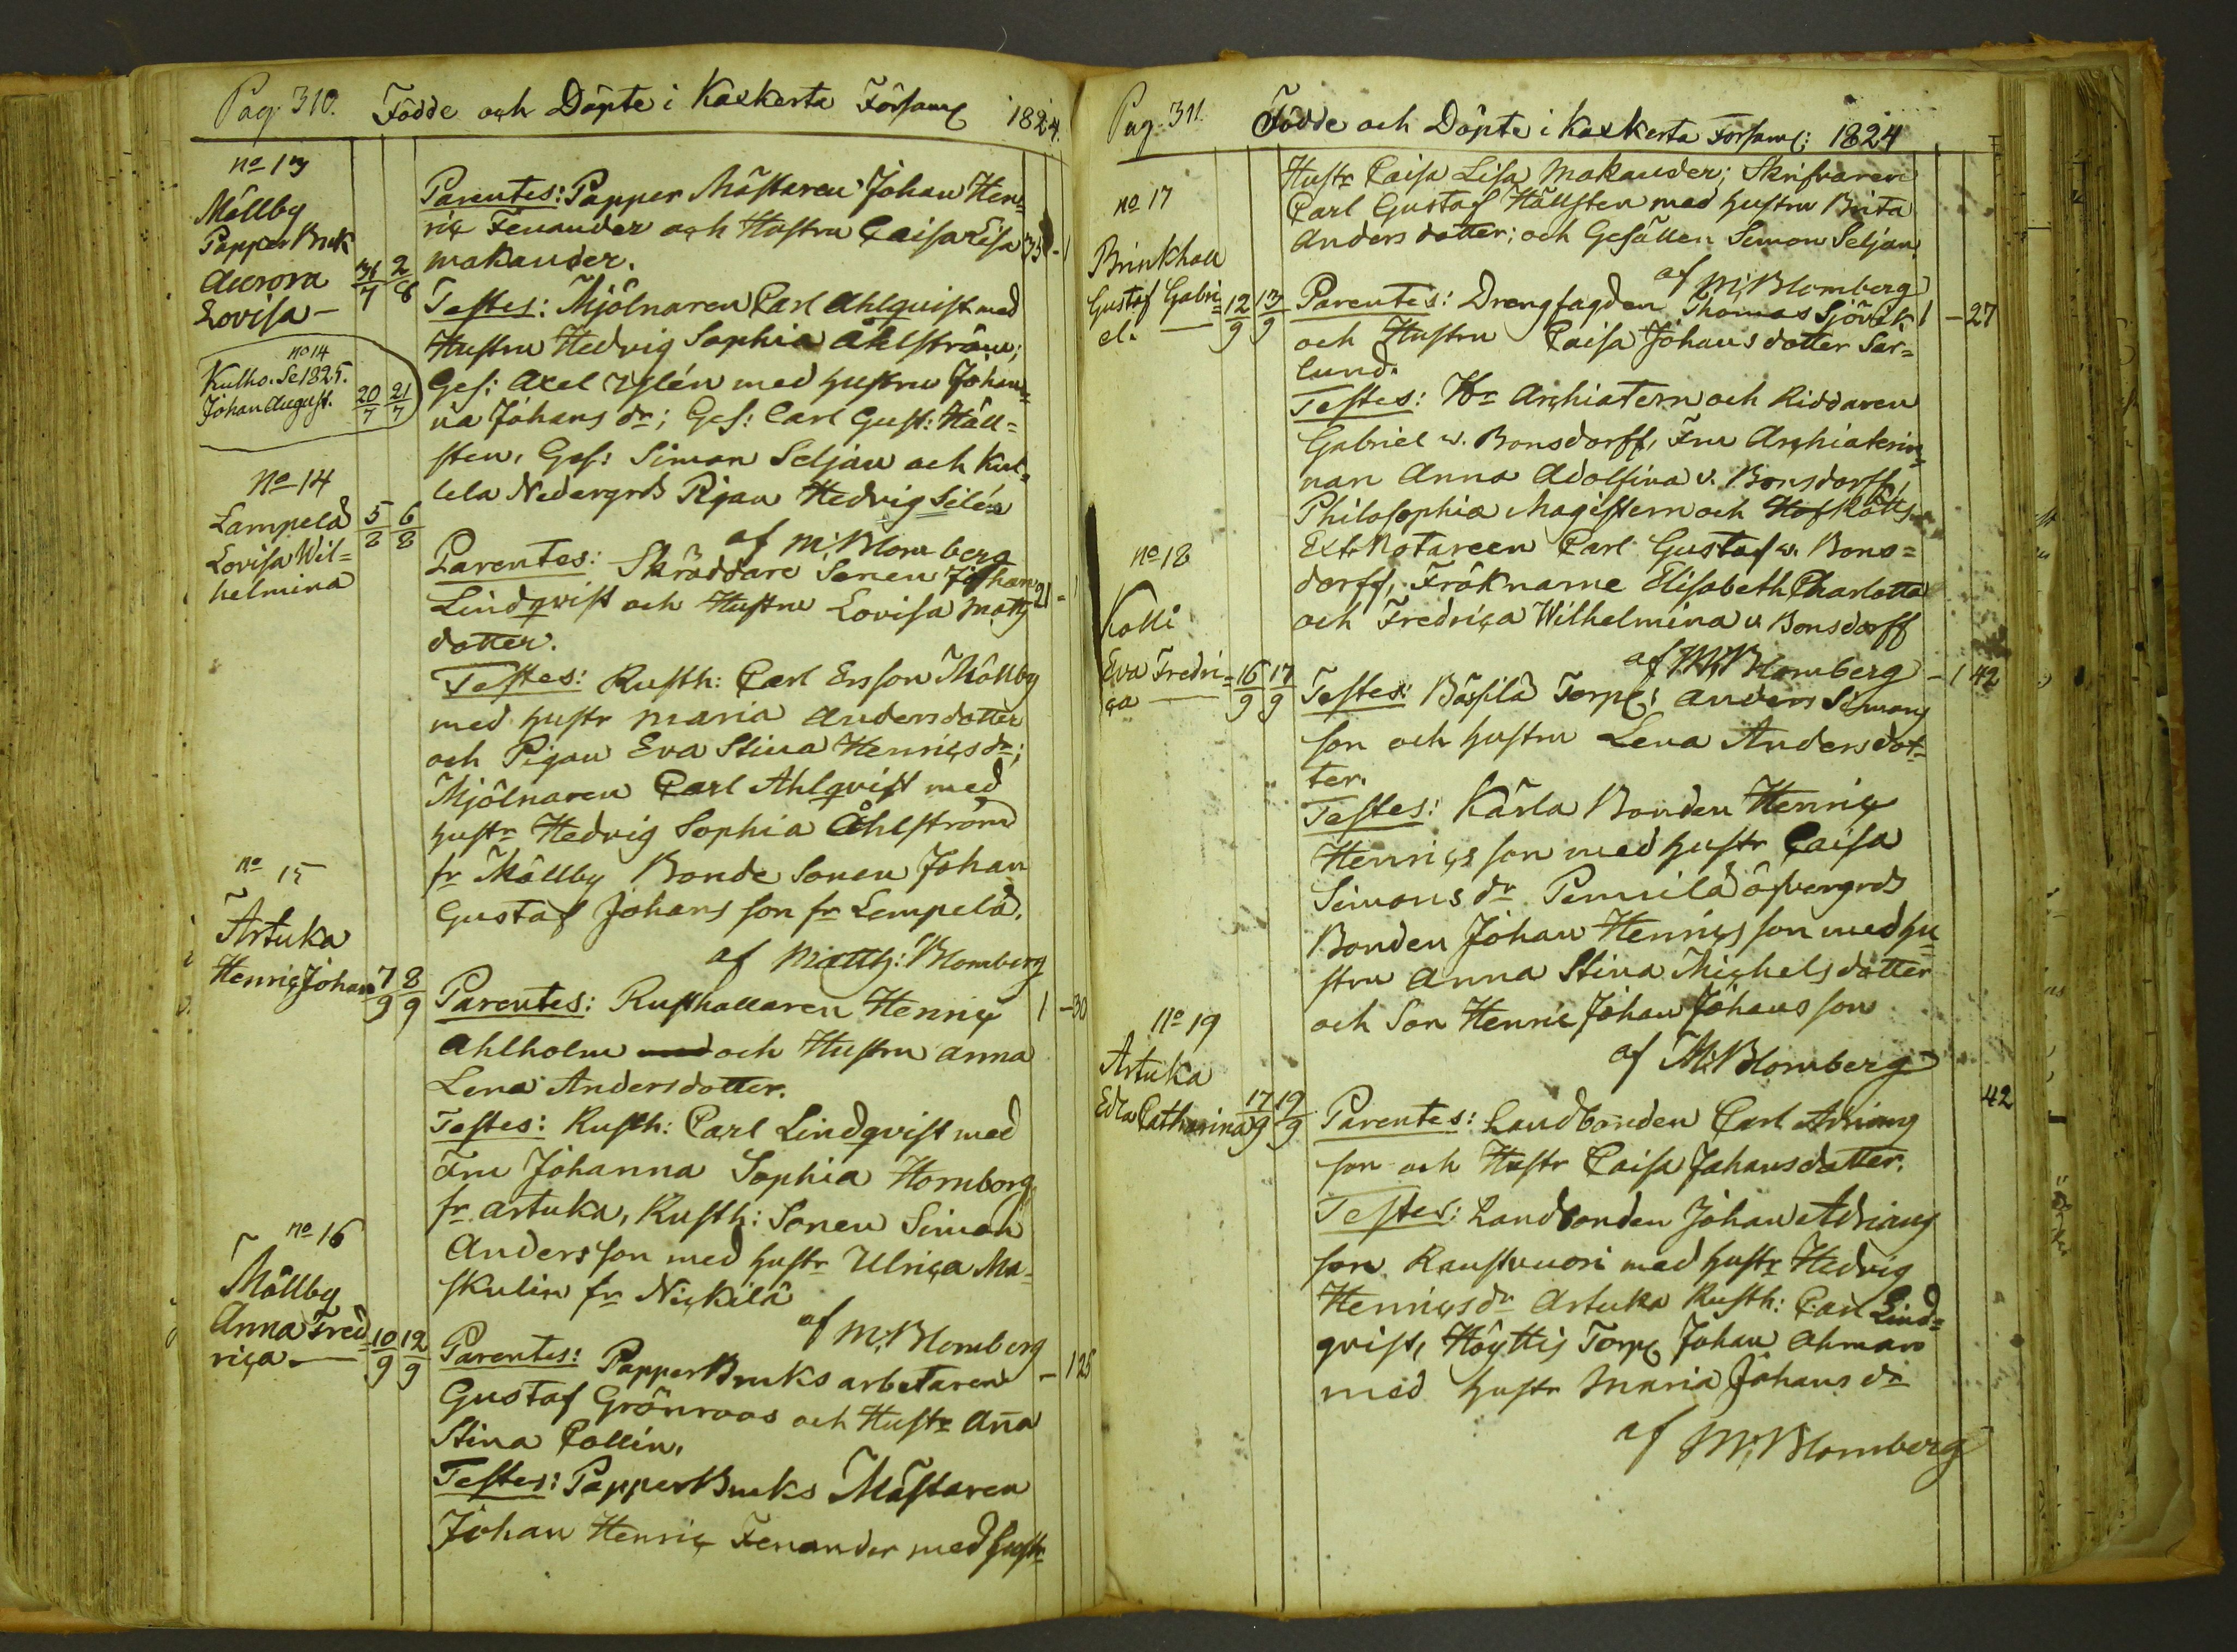 Pag. 310. Födde och Döpte i Kaxkerta Församl 1824.
No 13
Mållby
Papper Bruk
Aurora 31/7 2/8
Lovisa —
Parentes: Papper Mästaren Johan Hen=
ric Fenander och Hustru Caisa Lisa 35 - 1
Makander.
Testes: Mjölnaren Carl Ahlqvist med
Hustru Hedvig Sophia Åhlström;
Ges: Axel med hustru Johan=
na Johans dr; Ges: Carl Gust: Häll=
sten, Ges: Simon Seljan och Kul=
lela Nedergrds Pigan Hedvig Silén
af M: Blomberg
no 14
Kulho. Se 1825.
Johan August. 20/7 21/7
No 14
Lampelä 5/8 6/8
Lovisa Wil=
helmina
Parentes: Skräddare Sonen Johan 21 - 1
Lindqvist och Hustru Lovisa Matts
dotter.
Testes: Rusth: Carl Ersson Mållby
med hustr Maria Andersdotter
och Pigan Eva Stina Henricsdr;
Mjölnaren Carl Ahlqvist med
hustr Hedvig Sophia Åhlström
fr Mållby Bonde Sonen Johan
Gustaf Johans son fr Lempelä.
af Matth: Blomberg
no 15
Artuka
Henric Johan 7/9 8/9
Parentes: Rusthållaren Henric 1 - 30
Ahlholm med och Hustru Anna
Lena Andersdotter.
Testes: Rusth: Carl Lindqvist med
Fru Johanna Sophia Hornborg
fr. Artuka, Rusth: Sonen Simon
Andersson med hustr Ulrica Ma=
skulin fr Nickilä
af M; Blomberg
no 16
Mållby
Anna Fred= 10/9 12/9
rica —
Parentes: PapperBruks arbetaren - 1 25
Gustaf Grönroos och Hustr Aña
Stina Collin.
Testes: PapperBruks Mästaren
Johan Henric Fenander med hustr
Pag. 311. Födde och Döpte i Kaxkerta Församl: 1824
Hustr Caisa Lisa Makander; Skrifvaren
Carl Gustaf Hällsten med hustru Brita
Anders dotter; och Gesällen Simon Seljan.
af M; Blomberg
no 17
Brinkhall
Gustaf Gabri= 12/9 13/9
el. —
Parentes: Drengfogden Thomas 1 - 27
och Hustru Caisa Johans dotter Ser=
lund.
Testes: Hr Archiatern och Riddaren
Gabriel v. Bonsdorff, Fru Archiatrin=
nan Anna Adolfina v. Bonsdorff,
Philosophiæ Magistern och Hof Rätts
Ext. Notarien Carl Gustaf v. Bons=
dorff, Fröknarne Elisabeth Charlotta
och Fredrica Wilhelmina v. Bonsdorff
af M; Blomberg
no 18
Kolli
Eva Fredri= 16/9 17/9
ca —
Testes: Torp: Anders Simons - 1 42
son och hustru Lena Andersdot=
ter.
Testes: Kärla Bonden Henric
Henrics son med hustr Caisa
Simons dr Pemilä öfvergrds
Bonden Johan Henrics son med hu=
stru Anna Stina Michelsdotter
och Son Henric Johan Johans son
af M: Blomberg
No 19
Artuka
Edla Catharina 17/9 19/9
Parentes: Landbonden Carl Adrians 42
son och Hustr Caisa Johansdotter.
Testes: Landbonden Johan Adrians
son Raustvuori med hustr Hedvig
Henricsdr Artuka Rusth: Carl Lind=
qvist, Höyttis Torp: Johan Ahman
med hustr Maria Johans dr
af M; Blomberg